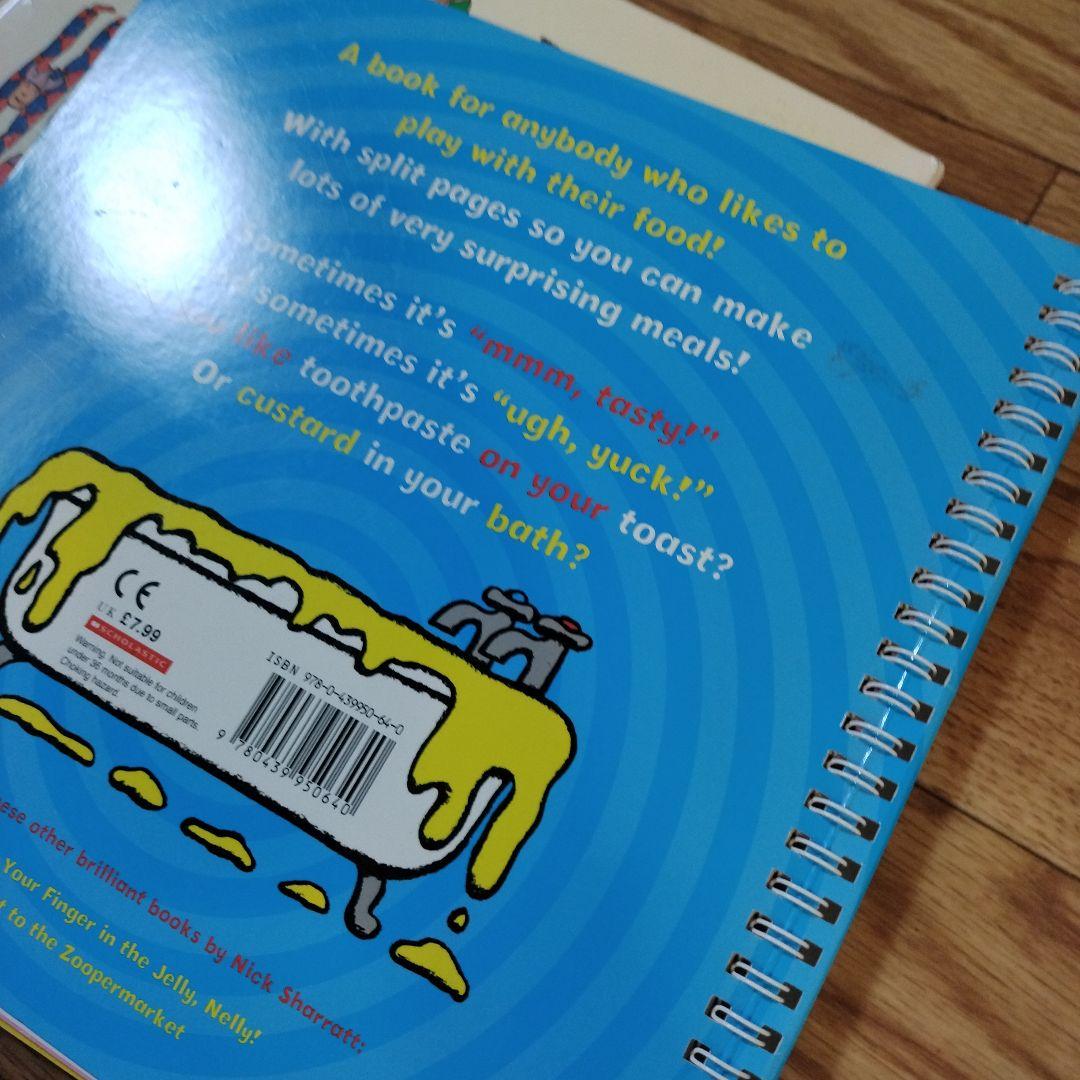 A book for anybody who likes to
play with their food!
With split pages so you can make
lots of very surprising meals!
sometimes it's "mmm, tasty!"
sometimes it's "ugh, yuck!"
like toothpaste on your toast?
Or custard in your bath?
CE
UK £7.99
SCHOLASTIC
Warning. Not suitable for children
under 36 months due to small parts.
Choking hazard.
ISBN 978-0-439950-64-0
9 780439 950640
other brilliant books by Nick Sharratt:
Your Finger in the Jelly, Nelly!
to the Zoopermarket